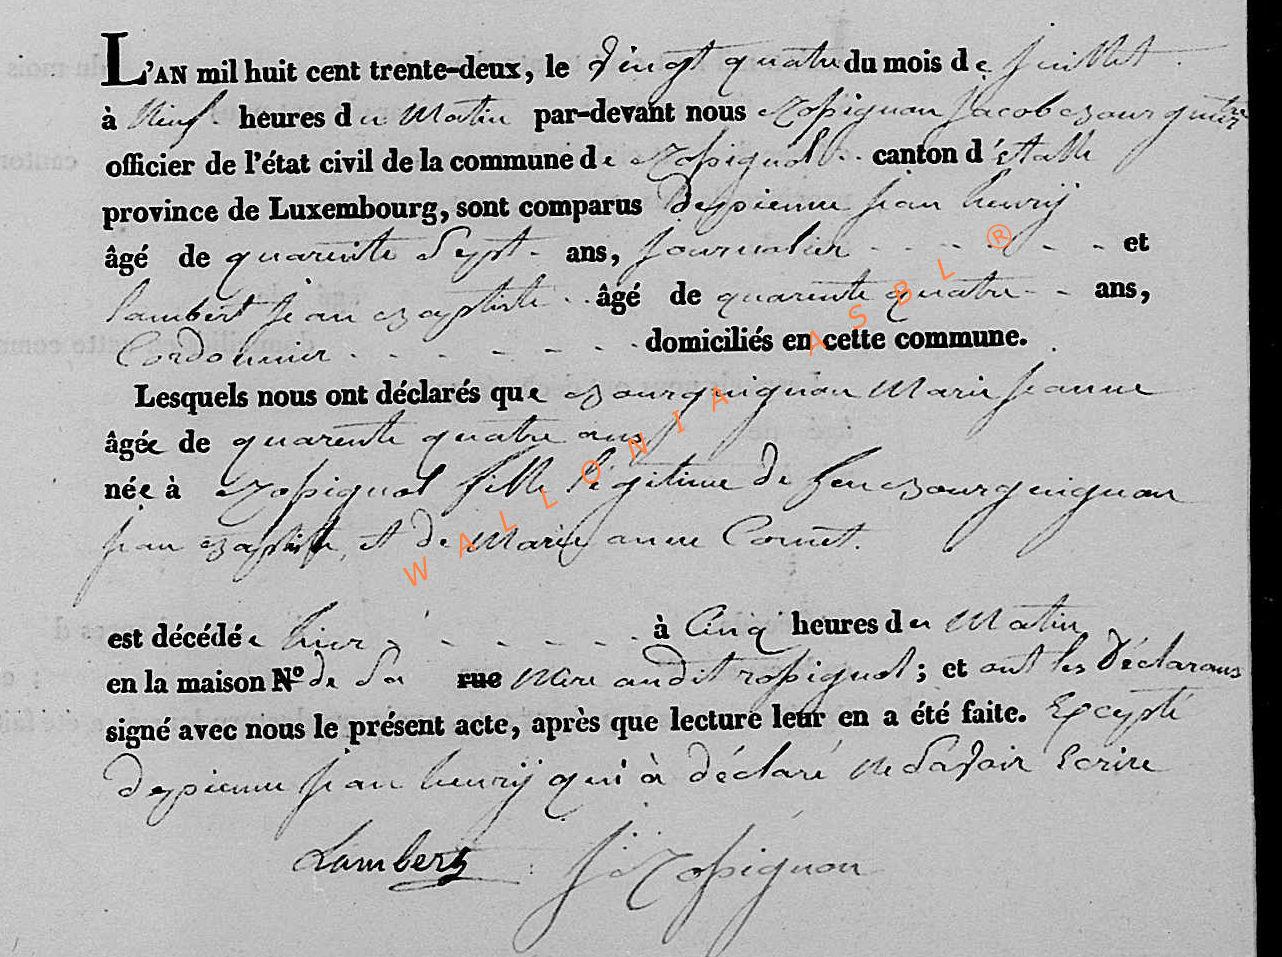 L'AN mil huit cent trente-deux, le vingt quatre du mois de juillet
à Neuf heures du Matin par-devant nous Rossignon Jacob
officier de l'état civil de la commune de Rossignol canton d'étalle
province de Luxembourg, sont comparus depienne jean henrij
âgé de quarente Sept ans, journalier et
lambert jean baptiste âgé de quarente quatre ans,
Cordonnier domiciliés en cette commune.
Lesquels nous ont déclarés que bourguignon Marie jeanne
âgée de quarente quatre ans
née à Rossignol fille légitime de feu bourguignon
jean baptiste et de Marie anne Cornet.
est décédée hier à Cinq heures du Matin
en la maison No de Sa rue Mère audit rossignol; et ont les déclarans
signé avec nous le présent acte, après que lecture leur en a été faite. Excepté
depienne jean henrij qui à déclaré ne Savoir Ecrire
Lambert J Rossignon
WALLONIA ASBL ®